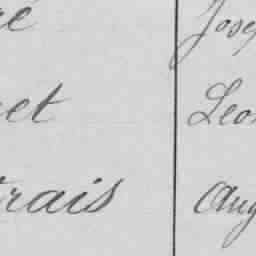 re Jose
et Leo
rais Aug